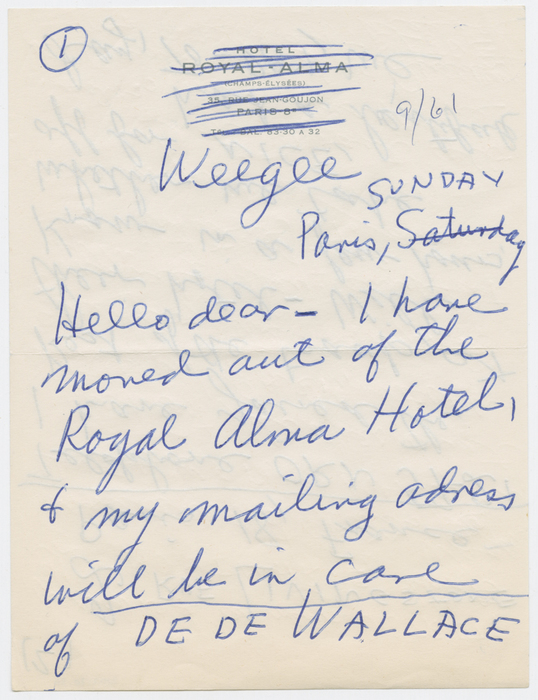 1
HOTEL
ROYAL-ALMA
(CHAMPS-ÉLYSÉES)
35, RUE JEAN-GOUJON
PARIS 8e
TÉL. BAL. 83-30 A 32
9/61
Weegee
SUNDAY
Paris, Saturday
Hello dear — I have
moved out of the
Royal Alma Hotel,
& my mailing adress
will be in care
of DE DE WALLACE